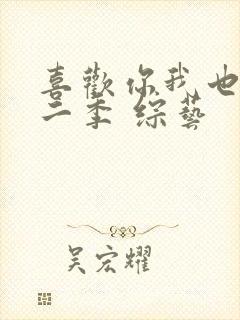 喜歡你我也
二季 綜藝
吴宏耀